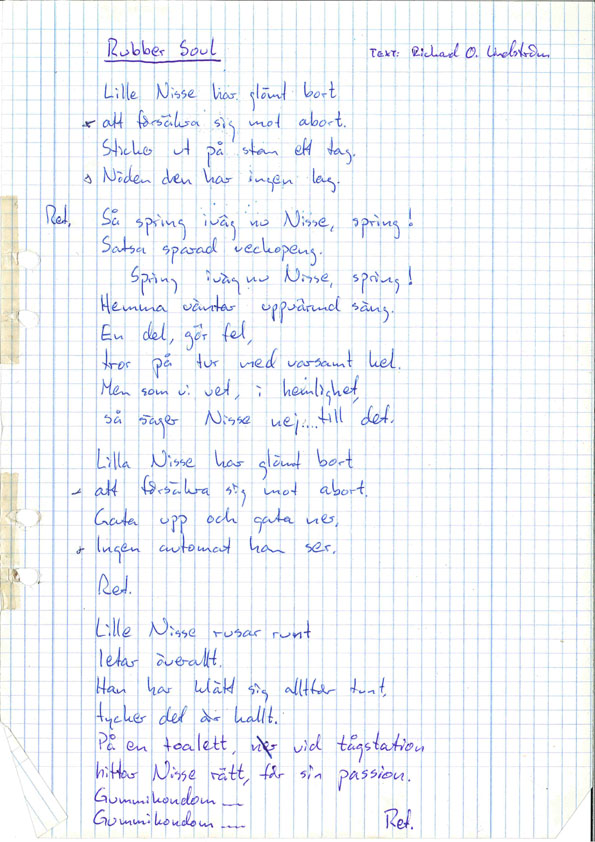 Rubber Soul
Text: Richard O. Lindström
Lille Nisse har glömt bort
* att försäkra sig mot abort.
Sticker ut på stan ett tag.
* Nöden den har ingen lag.
Ref. Så spring iväg nu Nisse, spring!
Satsa sparad veckopeng.
Spring iväg nu Nisse, spring!
Hemma väntar uppvärmd säng.
En del, gör fel,
tror på tur med varsamt hel.
Men som vi vet, i hemlighet,
så säger Nisse nej....till det.
Lilla Nisse har glömt bort
* att försäkra sig mot abort.
Gata upp och gata ner,
* Ingen automat han ser.
Ref.
Lille Nisse rusar runt
letar överallt.
Han har klätt sig alltför tunt,
tycker det är kallt.
På en toalett, vid tågstation
hittar Nisse rätt, för sin passion.
Gummikondom __
Gummikondom __
Ref.